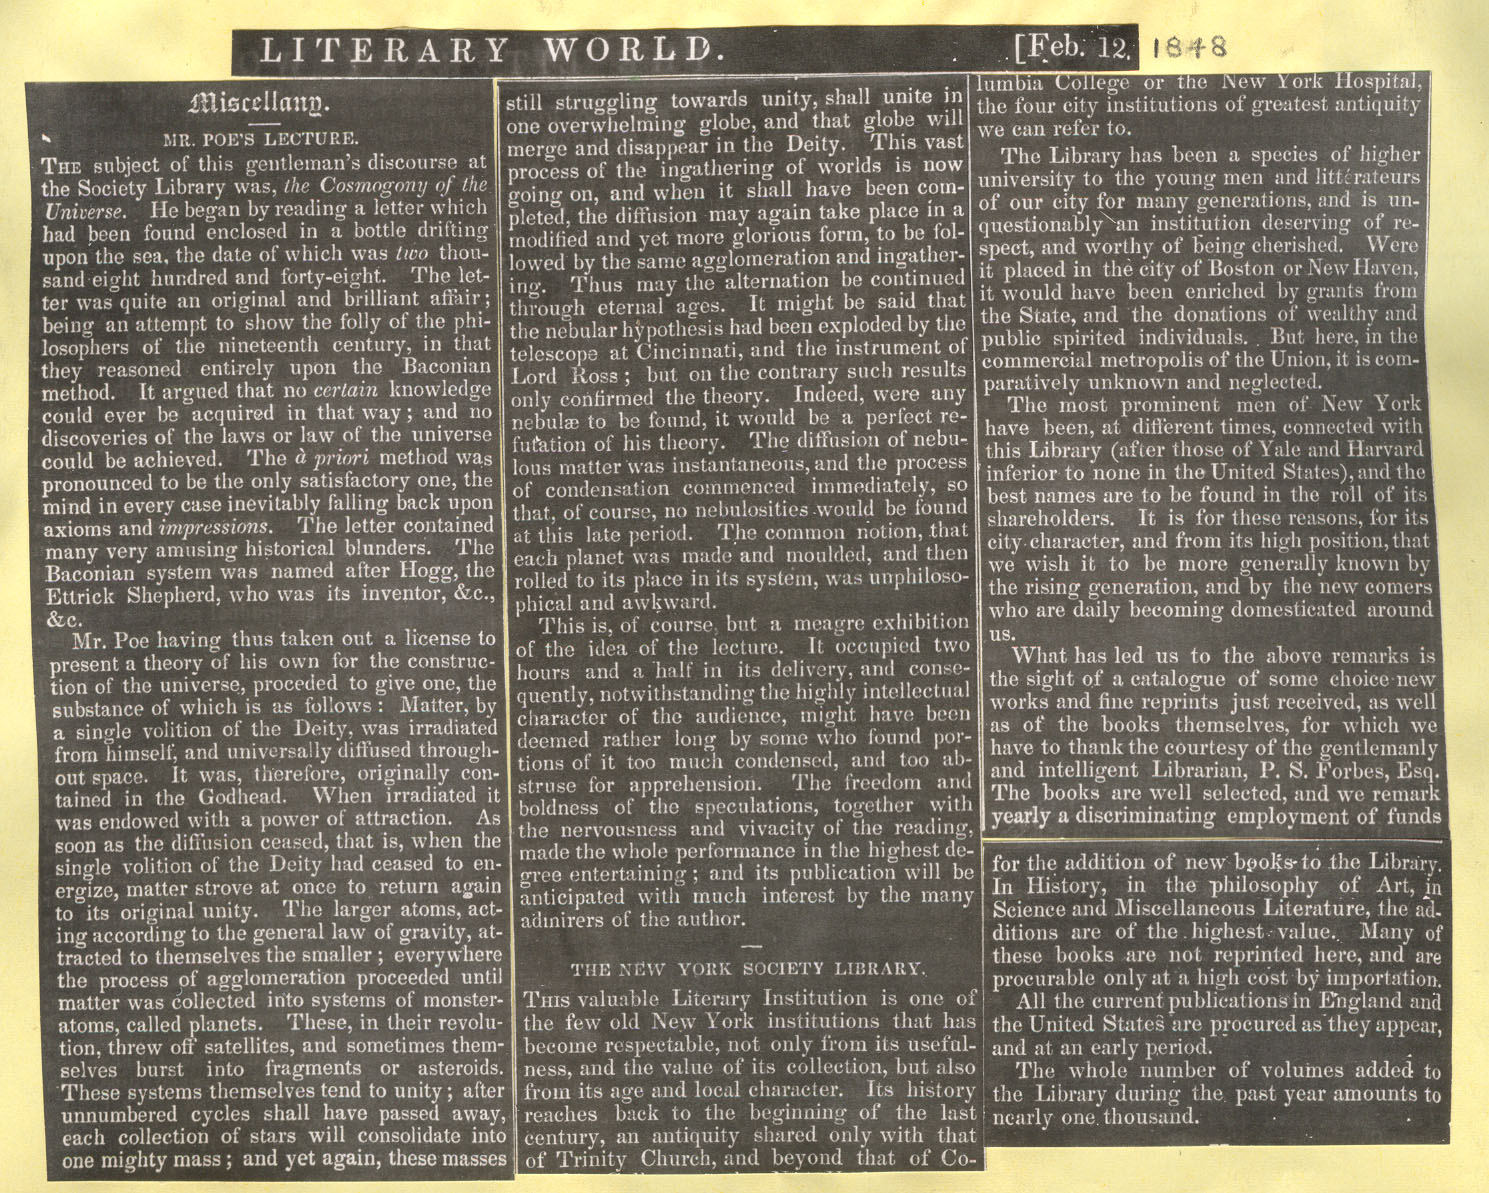 LITERARY WORLD.
[Feb. 12.
1848
Miscellany.
MR. POE'S LECTURE.
THE subject of this gentleman's discourse at
the Society Library was, the Cosmogony of the
Universe. He began by reading a letter which
had been found enclosed in a bottle drifting
upon the sea, the date of which was two thou-
sand eight hundred and forty-eight. The let-
ter was quite an original and brilliant affair;
being an attempt to show the folly of the phi-
losophers of the nineteenth century, in that
they reasoned entirely upon the Baconian
method. It argued that no certain knowledge
could ever be acquired in that way; and no
discoveries of the laws or law of the universe
could be achieved. The à priori method was
pronounced to be the only satisfactory one, the
mind in every case inevitably falling back upon
axioms and impressions. The letter contained
many very amusing historical blunders. The
Baconian system was named after Hogg, the
Ettrick Shepherd, who was its inventor, &c.,
&c.
Mr. Poe having thus taken out a license to
present a theory of his own for the construc-
tion of the universe, proceded to give one, the
substance of which is as follows: Matter, by
a single volition of the Deity, was irradiated
from himself, and universally diffused through-
out space. It was, therefore, originally con-
tained in the Godhead. When irradiated it
was endowed with a power of attraction. As
soon as the diffusion ceased, that is, when the
single volition of the Deity had ceased to en-
ergize, matter strove at once to return again
to its original unity. The larger atoms, act-
ing according to the general law of gravity, at-
tracted to themselves the smaller; everywhere
the process of agglomeration proceeded until
matter was collected into systems of monster-
atoms, called planets. These, in their revolu-
tion, threw off satellites, and sometimes them-
selves burst into fragments or asteroids.
These systems themselves tend to unity; after
unnumbered cycles shall have passed away,
each collection of stars will consolidate into
one mighty mass; and yet again, these masses
still struggling towards unity, shall unite in
one overwhelming globe, and that globe will
merge and disappear in the Deity. This vast
process of the ingathering of worlds is now
going on, and when it shall have been com-
pleted, the diffusion may again take place in a
modified and yet more glorious form, to be fol-
lowed by the same agglomeration and ingather-
ing. Thus may the alternation be continued
through eternal ages. It might be said that
the nebular hypothesis had been exploded by the
telescope at Cincinnati, and the instrument of
Lord Ross; but on the contrary such results
only confirmed the theory. Indeed, were any
nebulæ to be found, it would be a perfect re-
futation of his theory. The diffusion of nebu-
lous matter was instantaneous, and the process
of condensation commenced immediately, so
that, of course, no nebulosities would be found
at this late period. The common notion, that
each planet was made and moulded, and then
rolled to its place in its system, was unphiloso-
phical and awkward.
This is, of course, but a meagre exhibition
of the idea of the lecture. It occupied two
hours and a half in its delivery, and conse-
quently, notwithstanding the highly intellectual
character of the audience, might have been
deemed rather long by some who found por-
tions of it too much condensed, and too ab-
struse for apprehension. The freedom and
boldness of the speculations, together with
the nervousness and vivacity of the reading,
made the whole performance in the highest de-
gree entertaining; and its publication will be
anticipated with much interest by the many
admirers of the author.
THE NEW YORK SOCIETY LIBRARY.
THIS valuable Literary Institution is one of
the few old New York institutions that has
become respectable, not only from its useful-
ness, and the value of its collection, but also
from its age and local character. Its history
reaches back to the beginning of the last
century, an antiquity shared only with that
of Trinity Church, and beyond that of Co-
lumbia College or the New York Hospital,
the four city institutions of greatest antiquity
we can refer to.
The Library has been a species of higher
university to the young men and littérateurs
of our city for many generations, and is un-
questionably an institution deserving of re-
spect, and worthy of being cherished. Were
it placed in the city of Boston or New Haven,
it would have been enriched by grants from
the State, and the donations of wealthy and
public spirited individuals. But here, in the
commercial metropolis of the Union, it is com-
paratively unknown and neglected.
The most prominent men of New York
have been, at different times, connected with
this Library (after those of Yale and Harvard
inferior to none in the United States), and the
best names are to be found in the roll of its
shareholders. It is for these reasons, for its
city character, and from its high position, that
we wish it to be more generally known by
the rising generation, and by the new comers
who are daily becoming domesticated around
us.
What has led us to the above remarks is
the sight of a catalogue of some choice new
works and fine reprints just received, as well
as of the books themselves, for which we
have to thank the courtesy of the gentlemanly
and intelligent Librarian, P. S. Forbes, Esq.
The books are well selected, and we remark
yearly a discriminating employment of funds
for the addition of new books to the Library.
In History, in the philosophy of Art, in
Science and Miscellaneous Literature, the ad-
ditions are of the highest value. Many of
these books are not reprinted here, and are
procurable only at a high cost by importation.
All the current publications in England and
the United States are procured as they appear,
and at an early period.
The whole number of volumes added to
the Library during the past year amounts to
nearly one thousand.